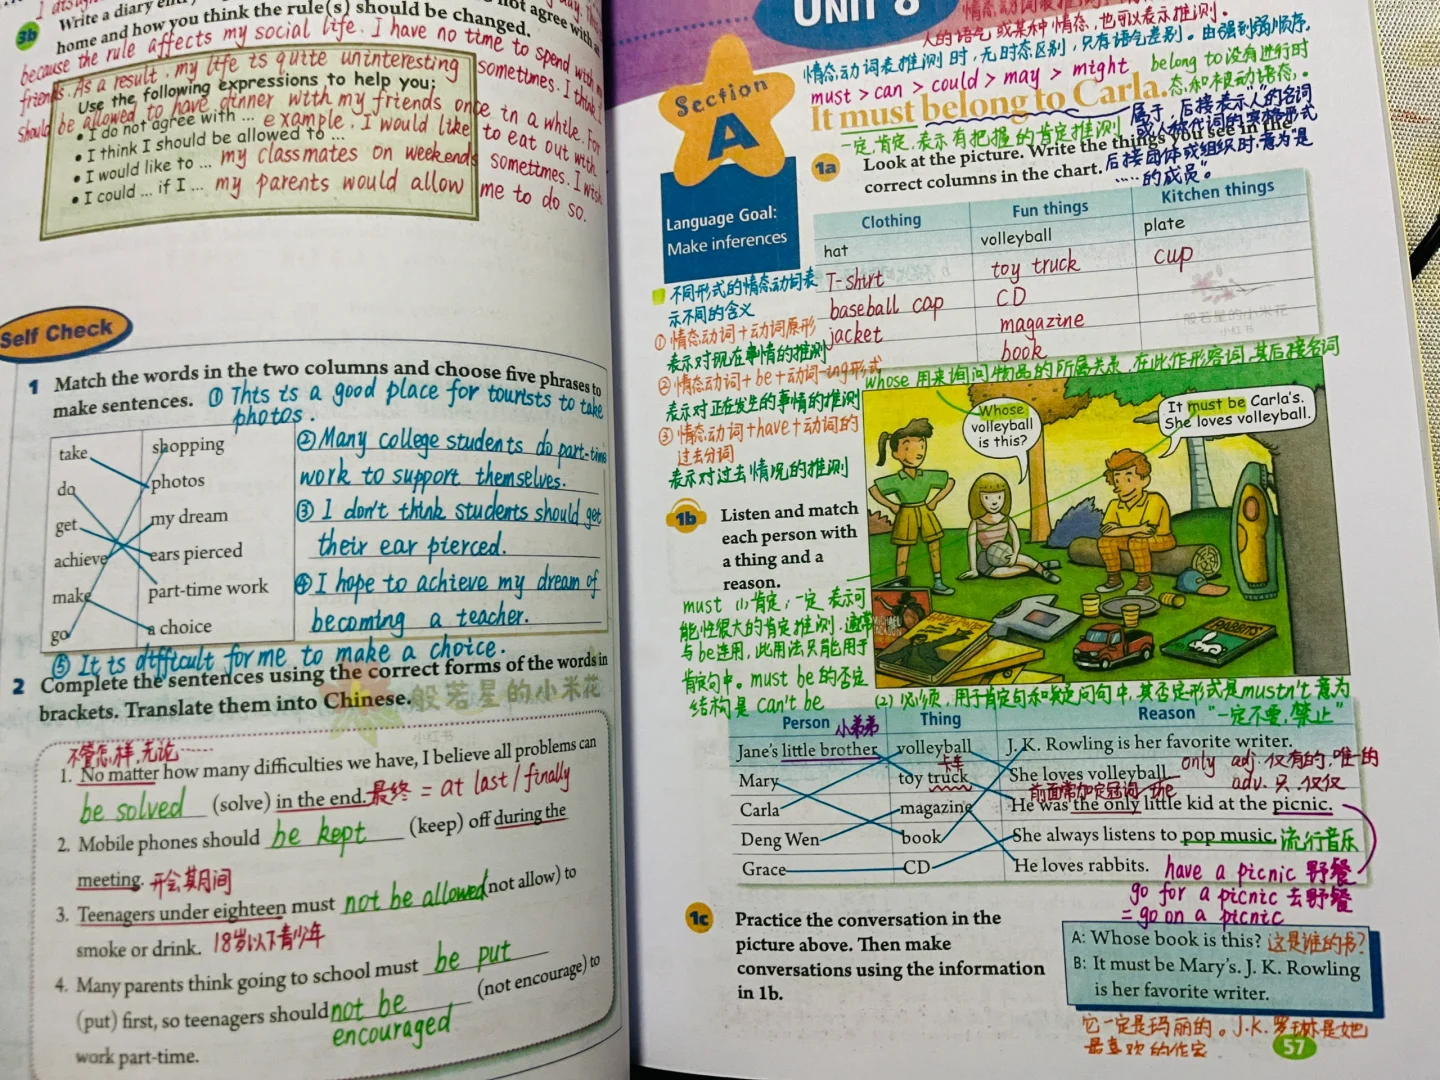 3b Write a diary entry
not agree with
home and how you think the rule(s) should be changed.
because the rule affects my social life. I have no time to spend with
friends. As a result, my life is quite uninteresting sometimes. I think I
Use the following expressions to help you:
should be allowed to have dinner with my friends once in a while. For
• I do not agree with ... example, I would like to eat out with
• I think I should be allowed to ...
• I would like to ... my classmates on weekends sometimes. I wish
• I could ... if I ... my parents would allow me to do so.
Self Check
1 Match the words in the two columns and choose five phrases to
make sentences. ① This is a good place for tourists to take
photos.
take
do
get
achieve
make
go
shopping
photos
my dream
ears pierced
part-time work
a choice
② Many college students do part-time
work to support themselves.
③ I don't think students should get
their ear pierced.
④ I hope to achieve my dream of
becoming a teacher.
⑤ It is difficult for me to make a choice.
2 Complete the sentences using the correct forms of the words in
brackets. Translate them into Chinese.
般若星的小米花
小红书
不管怎样,无论……
1. No matter how many difficulties we have, I believe all problems can
be solved (solve) in the end. 最终 = at last / finally
2. Mobile phones should be kept (keep) off during the
meeting. 开会期间
3. Teenagers under eighteen must not be allowed (not allow) to
smoke or drink. 18岁以下青少年
4. Many parents think going to school must be put
(put) first, so teenagers should not be encouraged (not encourage) to
work part-time.
UNIT 8
人的语气或某种情态,也可以表示推测。
情态动词表推测时,无时态区别,只有语气差别。由强到弱顺序,
must > can > could > may > might
belong to 没有进行时
态,和被动语态。
Section A
It must belong to Carla.
一定,肯定,表示有把握的肯定推测
属于,后接表示"人"的名词
或人称代词的宾格形式
后接团体或组织时,意为"是
……的成员"。
1a Look at the picture. Write the things you see in the
correct columns in the chart.
Language Goal:
Make inferences
Clothing Fun things Kitchen things
hat volleyball plate
T-shirt toy truck cup
baseball cap CD
jacket magazine
book
般若星的小米花
小红书
不同形式的情态动词表
示不同的含义
① 情态动词+动词原形
表示对现在事情的推测
② 情态动词+be+动词-ing形式
表示对正在发生的事情的推测
③ 情态动词+have+动词的
过去分词
表示对过去情况的推测
whose 用来询问物品的所属关系,在此作形容词,其后接名词
Whose
volleyball
is this?
It must be Carla's.
She loves volleyball.
RABBITS
1b Listen and match
each person with
a thing and a
reason.
must (1) 肯定,一定 表示可
能性很大的肯定推测,通常
与be连用,此用法只能用于
肯定句中。must be 的否定
结构是 can't be
(2) 必须,用于肯定句和疑问句中,其否定形式是mustn't 意为
"一定不要,禁止"
Person Thing Reason
小弟弟
Jane's little brother volleyball J. K. Rowling is her favorite writer.
卡车
Mary toy truck She loves volleyball.
only adj. 仅有的,唯一的
adv. 只,仅仅
前面常加定冠词 the
Carla magazine He was the only little kid at the picnic.
Deng Wen book She always listens to pop music. 流行音乐
Grace CD He loves rabbits.
have a picnic 野餐
go for a picnic 去野餐
= go on a picnic
1c Practice the conversation in the
picture above. Then make
conversations using the information
in 1b.
A: Whose book is this? 这是谁的书?
B: It must be Mary's. J. K. Rowling
is her favorite writer.
它一定是玛丽的。J.K.罗琳是她
最喜欢的作家
57